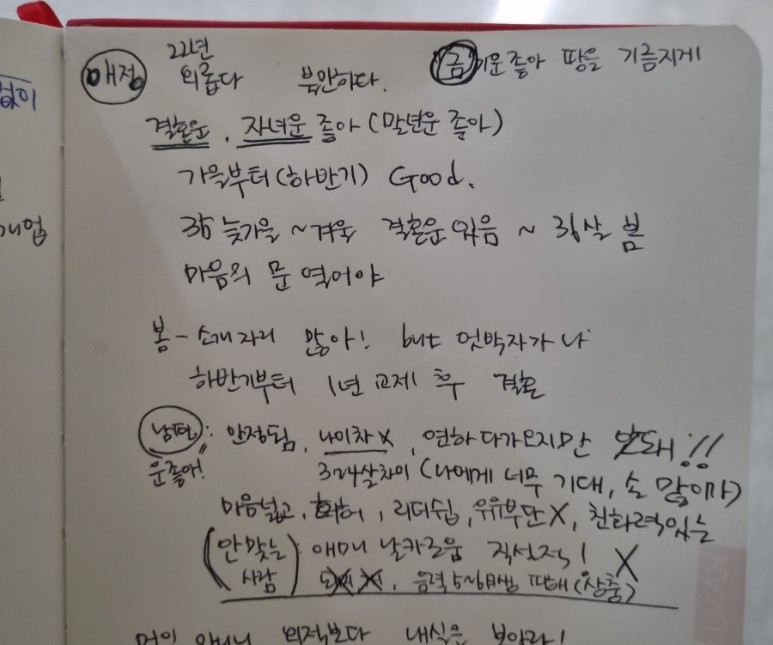 없이
개업
애정 22년
외롭다 불안하다. 금 기운 좋아 땅을 기름지게
결혼운, 자녀운 좋아 (말년운 좋아)
가을부터(하반기) Good.
35 늦가을 ~ 겨울 결혼운 있음 ~ 36살 봄
마음의 문 열어야
봄 - 소개자리 많아! but 엇박자가 나
하반기부터 1년 교제 후 결혼
남편 : 안정됨, 나이차 X, 연하 다가오지만 안돼!!
운좋아! 3~4살차이 (나에게 너무 기대, 손 많이가)
마음넓고, 리더쉽, 우유부단X, 친화력있는
(안맞는 사람) 애매 날카로움 직설적! X
음력 5~6월생 (상충)
외적보다 내실을 보아라!